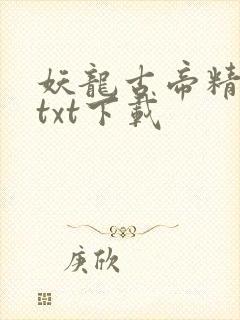 妖龍古帝精
txt下載
庚欣